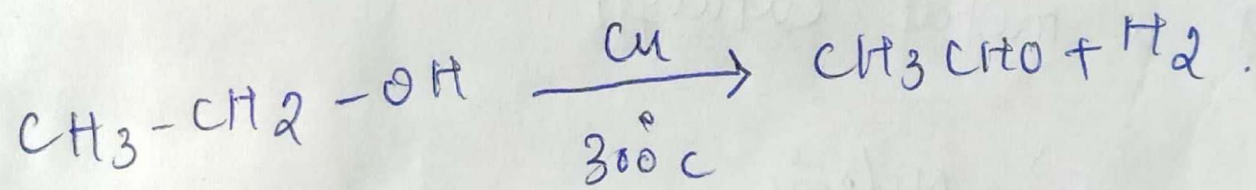 CH3-CH2-OH Cu/300°C → CH3CHO + H2.